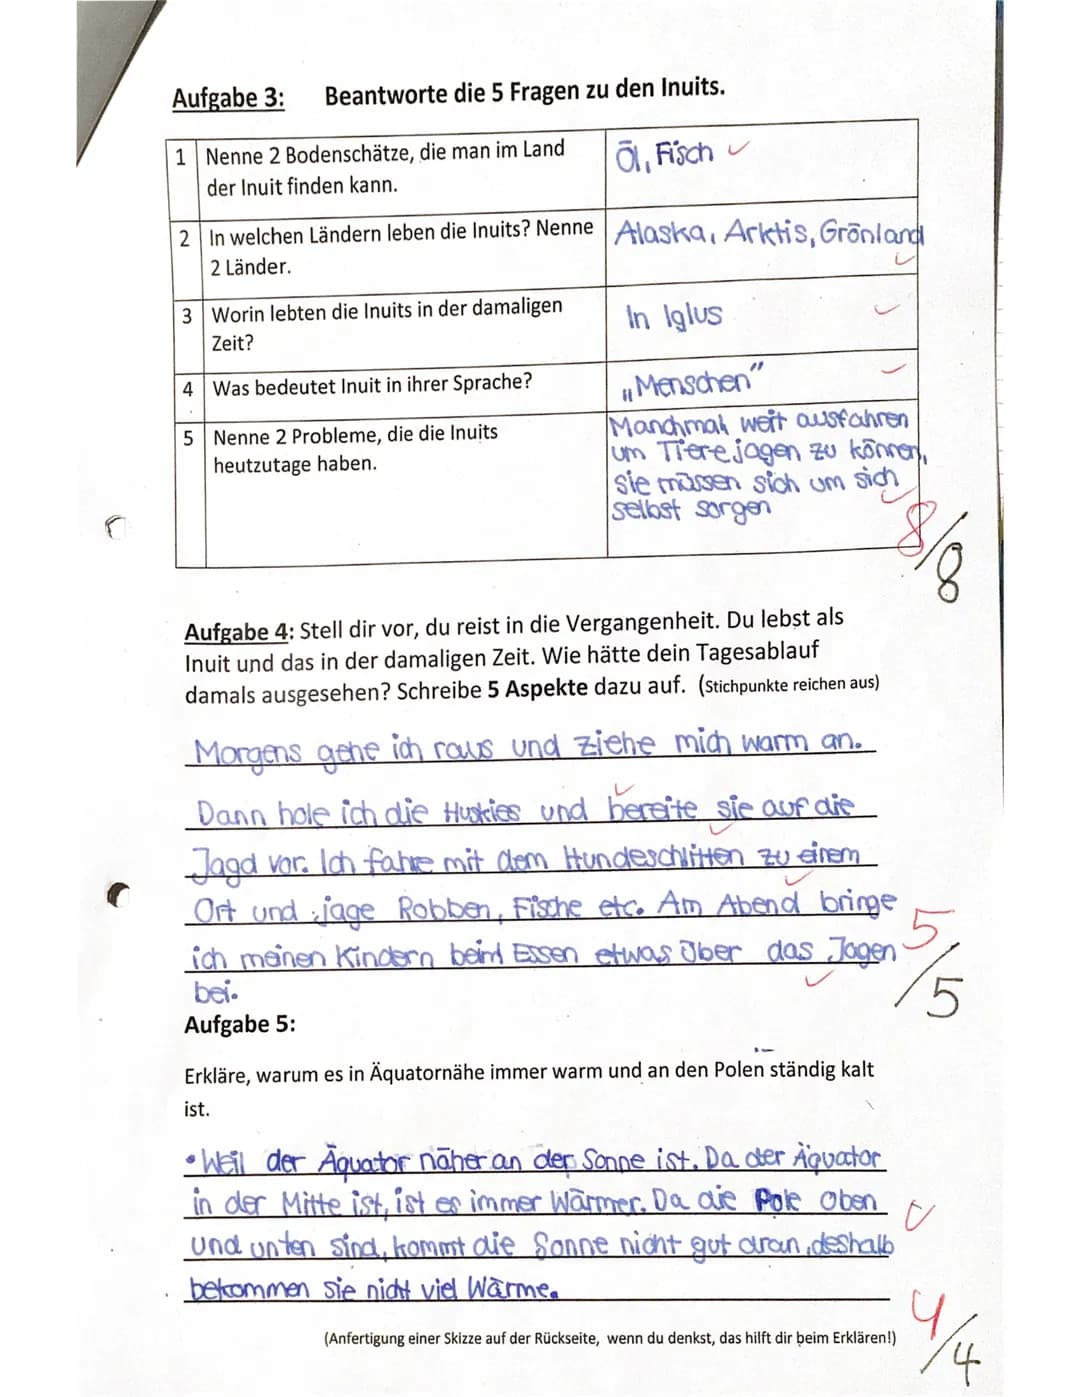 Aufgabe 3: Beantworte die 5 Fragen zu den Inuits.
1 Nenne 2 Bodenschätze, die man im Land
der Inuit finden kann.
Öl, Fisch
2 In welchen Ländern leben die Inuits? Nenne
2 Länder.
Alaska, Arktis, Grönland
3 Worin lebten die Inuits in der damaligen
Zeit?
In Iglus
4 Was bedeutet Inuit in ihrer Sprache?
„Menschen"
5 Nenne 2 Probleme, die die Inuits
heutzutage haben.
Manchmal weit ausfahren
um Tiere jagen zu können,
sie müssen sich um sich
selbst sorgen
8/8
Aufgabe 4: Stell dir vor, du reist in die Vergangenheit. Du lebst als
Inuit und das in der damaligen Zeit. Wie hätte dein Tagesablauf
damals ausgesehen? Schreibe 5 Aspekte dazu auf. (Stichpunkte reichen aus)
Morgens gehe ich raus und ziehe mich warm an.
Dann hole ich die Huskies und bereite sie auf die
Jagd vor. Ich fahre mit dem Hundeschlitten zu einem
Ort und jage Robben, Fische etc. Am Abend bringe
ich meinen Kindern beim Essen etwas über das Jagen
bei.
5/5
Aufgabe 5:
Erkläre, warum es in Äquatornähe immer warm und an den Polen ständig kalt
ist.
• Weil der Äquator näher an der Sonne ist. Da der Äquator
in der Mitte ist, ist es immer Wärmer. Da die Pole oben
und unten sind, kommt die Sonne nicht gut dran, deshalb
bekommen sie nicht viel Wärme.
4/4
(Anfertigung einer Skizze auf der Rückseite, wenn du denkst, das hilft dir beim Erklären!)